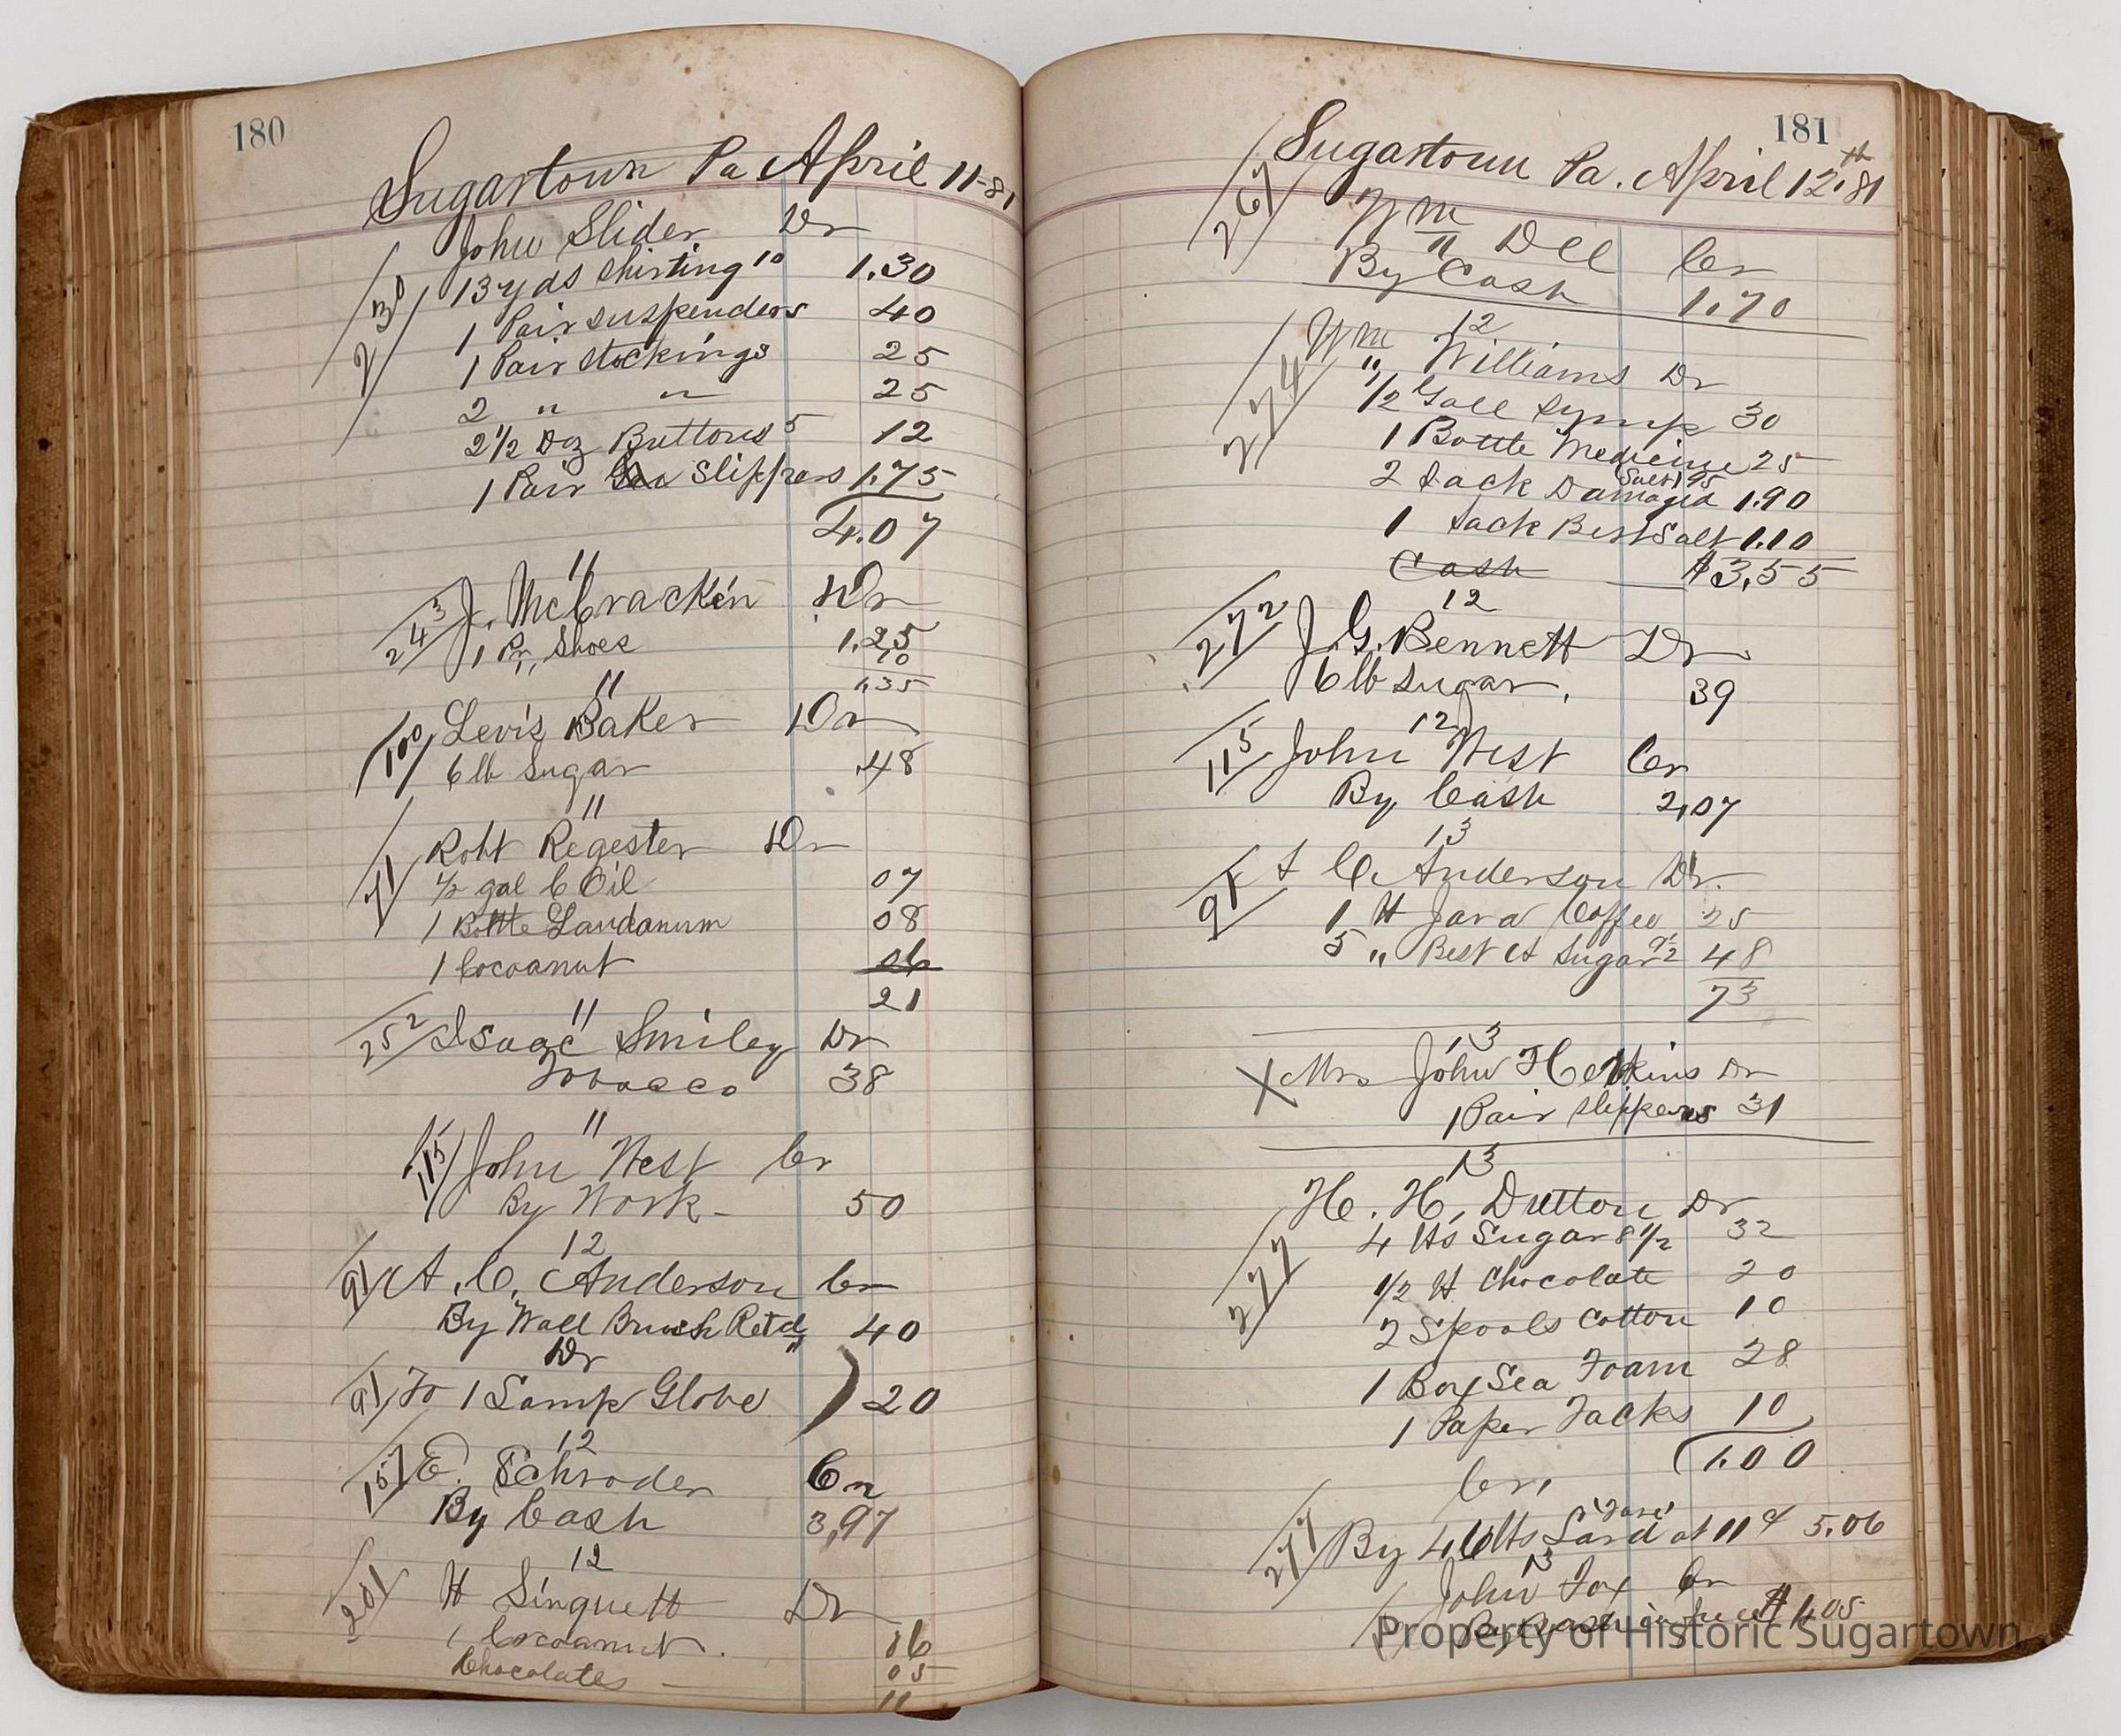 180
Sugartown Pa April 11-81
John Slider Dr
23
13 yds Shirting 10 1.30
1 Pair suspenders 40
1 Pair stockings 25
2 " " 25
2 1/2 Doz Buttons 5 12
1 Pair Slippers 1.75
4.07
11
243 J. McCracken Dr
1 Pr Shoes 1.25
10
1.35
11
100 Levis Baker Dr
6 lb Sugar .48
11
71 Robt Regester Dr
1/2 gal C Oil 07
1 Bottle Laudanum 08
1 Cocoanut 06
21
11
252 Isaac Smiley Dr
Tobacco 38
11
115 John West Cr
By Work - 50
12
91 A. C. Anderson Cr
By Wall Brush Retd 40
Dr
91 To 1 Lamp Globe ) 20
12
157 E. Schroder Cr
By Cash 3,97
12
201 H Singuett Dr
1 Cocoanut. 06
Chocolates 05
11
181
Sugartown Pa. April 12th, 81
267 Wm Dell Cr
By Cash 1.70
12
274 Wm Williams Dr
1/2 Gall Syrup 30
1 Bottle Medicine 25
2 Sack Damaged Salt 95 1.90
1 Sack Best Salt 1.10
Cash $3.55
12
272 J. G. Bennett Dr
6 lb Sugar. 39
12
115 John West Cr
By Cash 2,07
13
91 A C. Anderson Dr.
1 lb Java Coffee 25
5 " Best A Sugar 9 1/2 48
73
13
X Mrs John Hopkins Dr
1 Pair Slippers 31
13
H. H. Dutton Dr
277
4 lbs Sugar 8 1/2 32
1/2 lb Chocolate 20
2 Spools Cotton 10
1 Box Sea Foam 28
1 Paper Tacks 10
1.00
Cr,
277 By 46 lbs Lard at 11 ¢ 5.06
13
John Fox Cr
By Cash in full $4.05
Property of Historic Sugartown